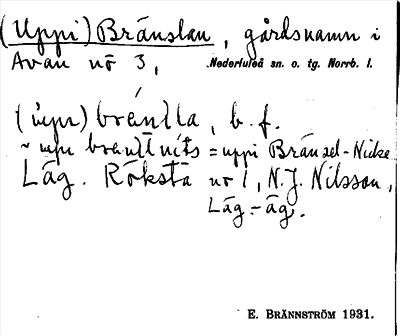 (Uppi) Bränslan, gårdsnamn i
Avan nö 3, Nederluleå sn. o. tg. Norrb. l.
(ùpı) brendla, b. f.
~ upı brendl nıts = uppi Bränsel-Nicke
Läg. Röksta nö 1, N. J. Nilsson,
Läg.-äg.
E. BRÄNNSTRÖM 1931.